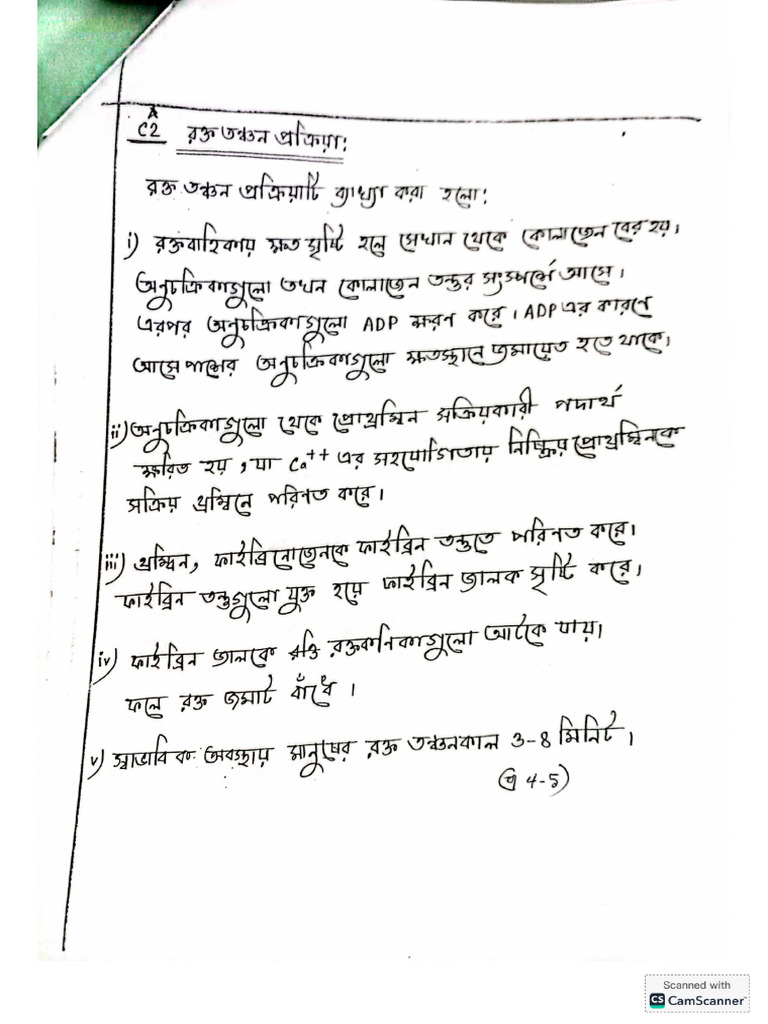 A
C2 রক্ত তঞ্চন প্রক্রিয়া:
রক্ত তঞ্চন প্রক্রিয়াটি ব্যাখ্যা করা হলো:
i) রক্তবাহিকায় ক্ষত সৃষ্টি হলে সেখান থেকে কোলাজেন বের হয়।
অনুচক্রিকাগুলো তখন কোলাজেন তন্তুর সংস্পর্শে আসে।
এরপর অনুচক্রিকাগুলো ADP ক্ষরণ করে। ADP এর কারণে
আসে পাশের অনুচক্রিকাগুলো ক্ষতস্থানে জমায়েত হতে থাকে।
ii) অনুচক্রিকাগুলো থেকে প্রোথ্রম্বিন সক্রিয়কারী পদার্থ
ক্ষরিত হয়, যা Ca++ এর সহযোগিতায় নিষ্ক্রিয় প্রোথ্রম্বিনকে
সক্রিয় থ্রম্বিনে পরিনত করে।
iii) থ্রম্বিন, ফাইব্রিনোজেনকে ফাইব্রিন তন্তুতে পরিনত করে।
ফাইব্রিন তন্তুগুলো যুক্ত হয়ে ফাইব্রিন জালক সৃষ্টি করে।
iv) ফাইব্রিন জালকে রক্তকনিকাগুলো আটকে যায়।
ফলে রক্ত জমাট বাঁধে।
v) স্বাভাবিক অবস্থায় মানুষের রক্ত তঞ্চনকাল ৩-৪ মিনিট।
4-5)
Scanned with
CS CamScanner